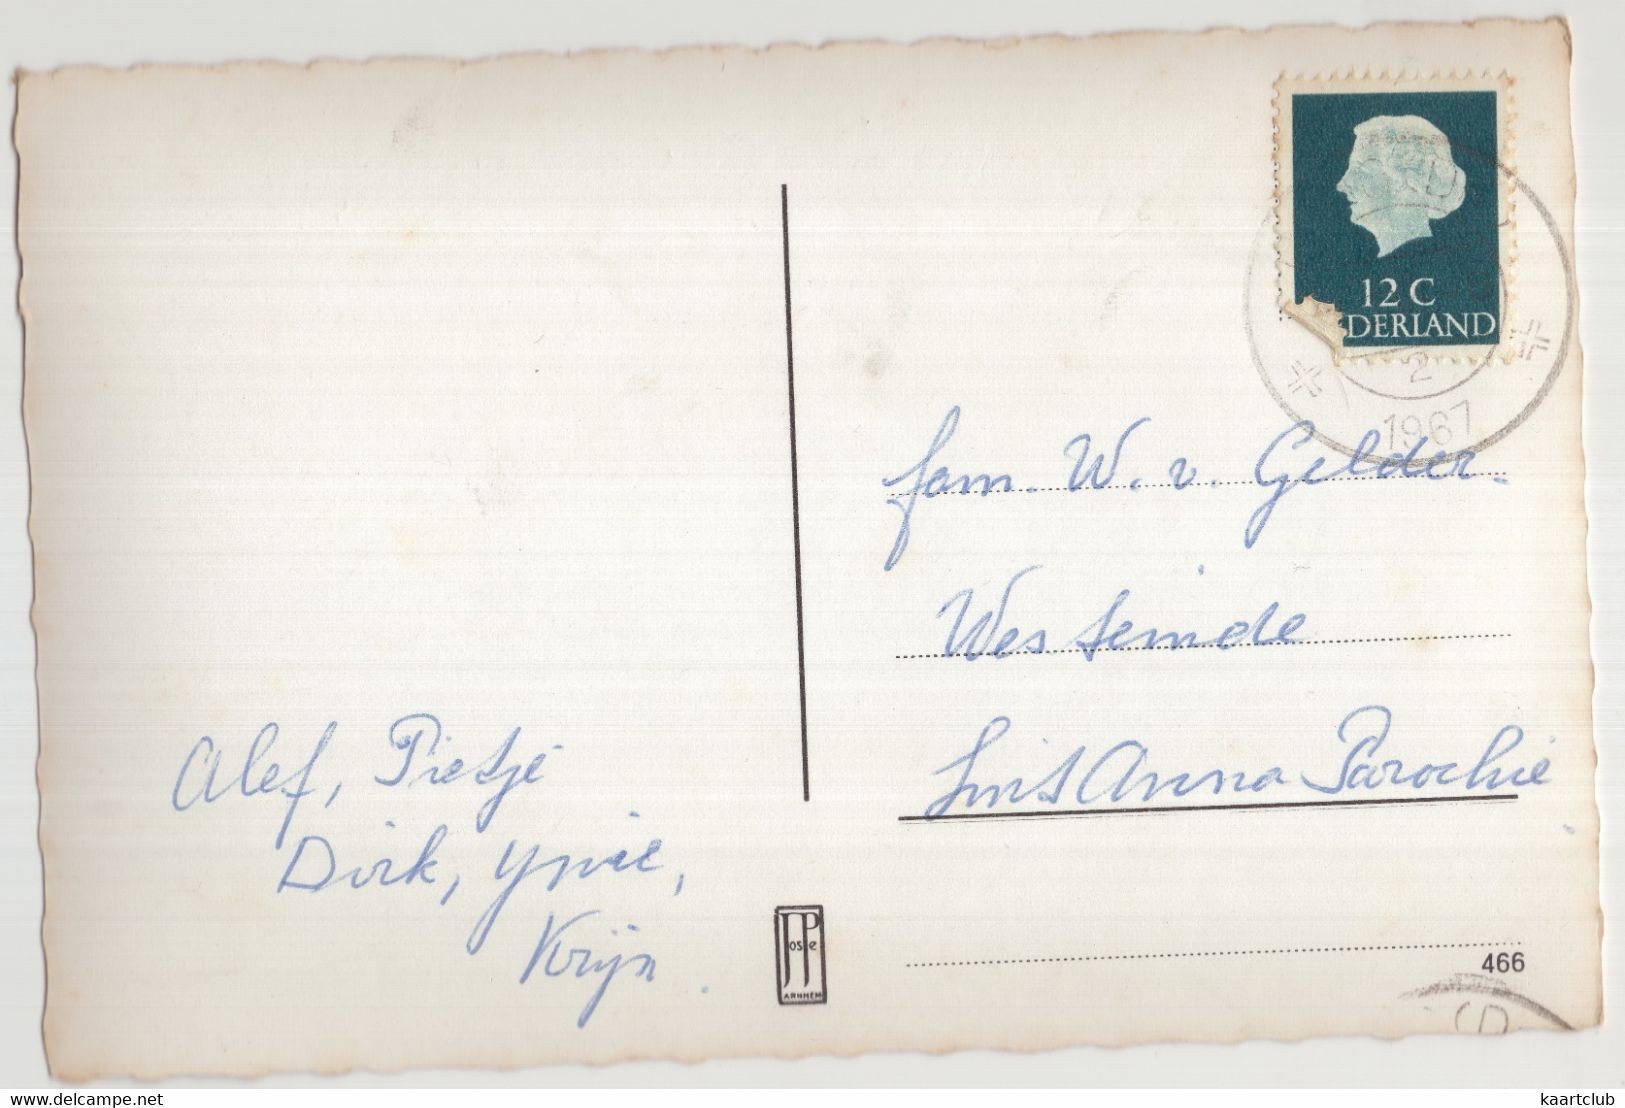 12 C
NEDERLAND
2
1967
fam. W. v. Gelder.
Westeinde
Sint Anna Parochie
Alef, Pietje
Dirk, Ynie,
Krijn.
JosPe
ARNHEM
466
www.delcampe.net
kaartclub